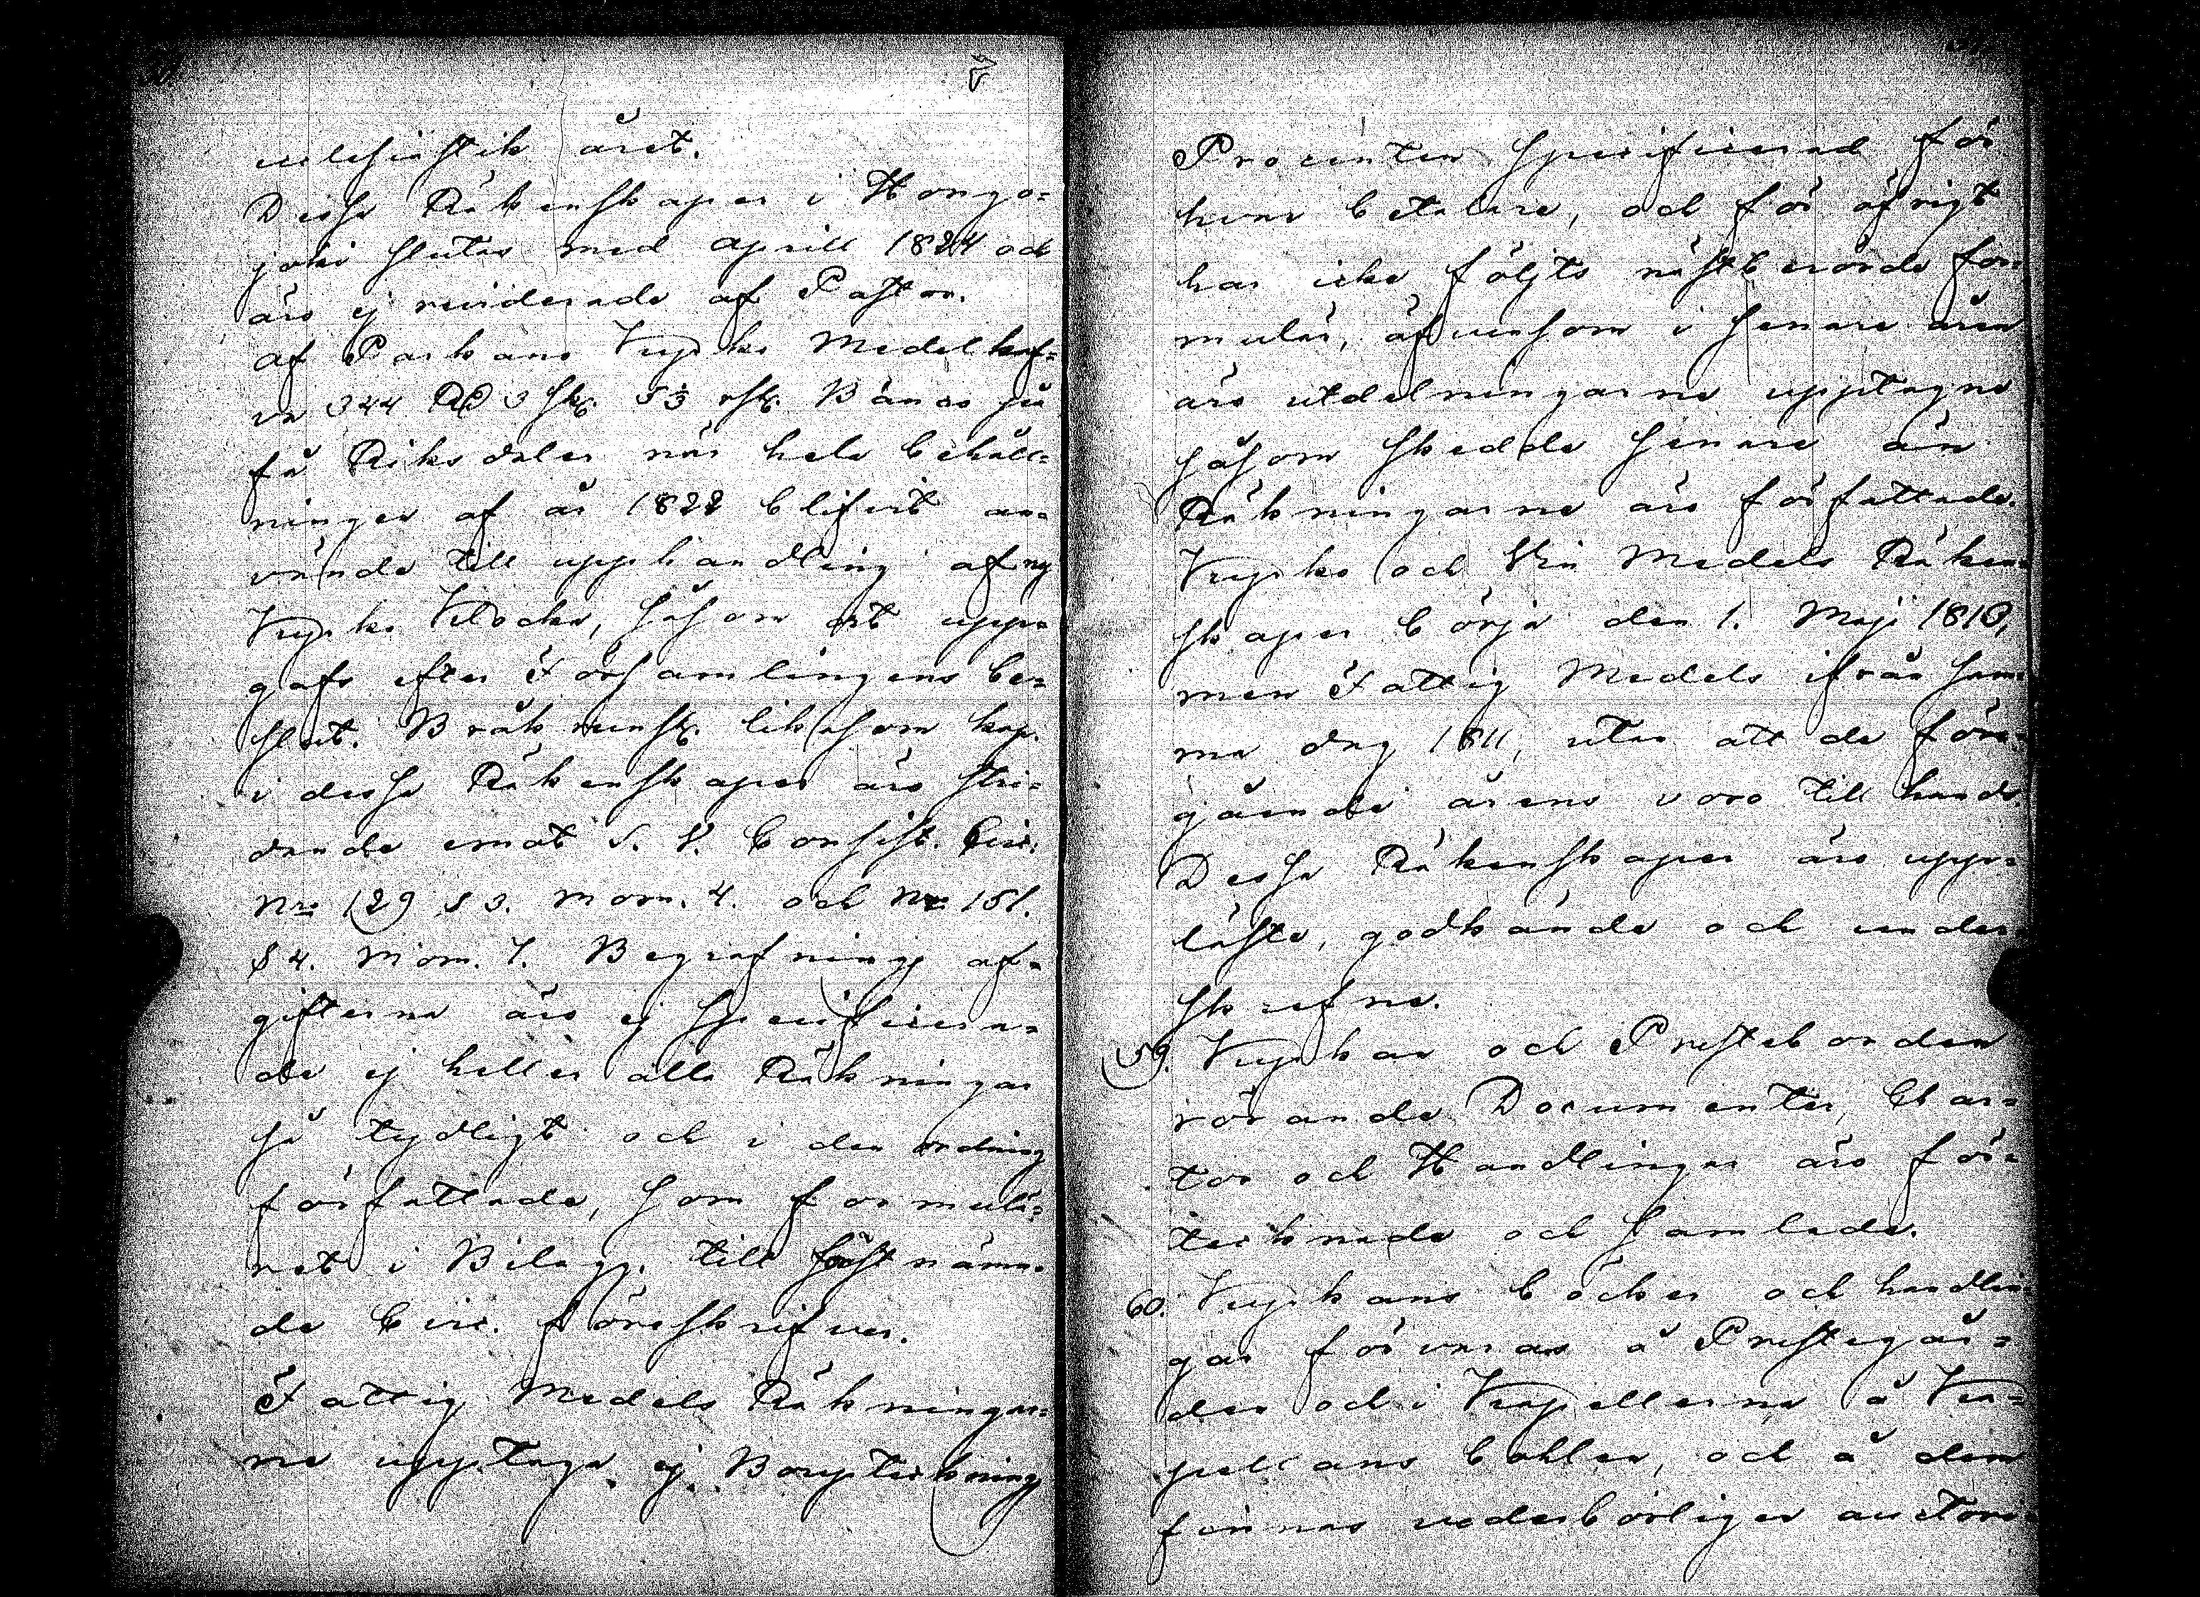 clesiastik året.
Dessa Räkenskaper i Hongo=
joki slutas med april 1824 och
äro ej reviderade af Pastor.
af Parkano Kyrko Medel haf=
va 344 RD 3 sk. 5 3 rst. Banco på
få Riksdaler när hela behåll=
ningen af år 1822 blifvit an=
vände till upphandling af ny
Kyrko Klocka, såsom det upp=
gafs efter Församlingens be=
slut. Bråk runst. liksom kop.
i dessa Räkenskaper äro stri=
dande emot S. V. Consist. Circ.
Nro 129 § 3. mom. 4. och Nro 151.
§ 4. Mom. 7. Begrafnings af=
gifterna äro ej specificera=
de ej heller alla Räkningar
så tydligt och i den ordning
författade, som formulä=
ret i Bilag. till sistnämn=
de Circ. föreskrifver.
Fattig Medels Räkningar=
ne upptaga ej Borgteckning
Procenten specificerad för
hvar betalare, och för öfrigt
har icke följts nästberörde for=
mulär, äfvensom i senare åren
äro utdelningarne upptagne
såsom skedde senare än
Räkningarne äro författade.
Kyrko och Vin Medels Räken=
skaper börja den 1. Maji 1813,
men Fattig Medels ifrån sam=
ma dag 1811, utan att de före=
gående årens voro till hands.
Dessa Räkenskaper äro upp=
läste, godkände och under=
skrefne.
59. Kyrkan och Presteborden
rörande Documenter, Char=
tor och Handlingar äro för=
tecknade och samlade.
60. Kyrkans böcker och handlin=
gar förvaras å Prestegår=
den och i Kapellerna å Ka=
pellans bohlen, och å dem
finnas vederbörligen auctori=